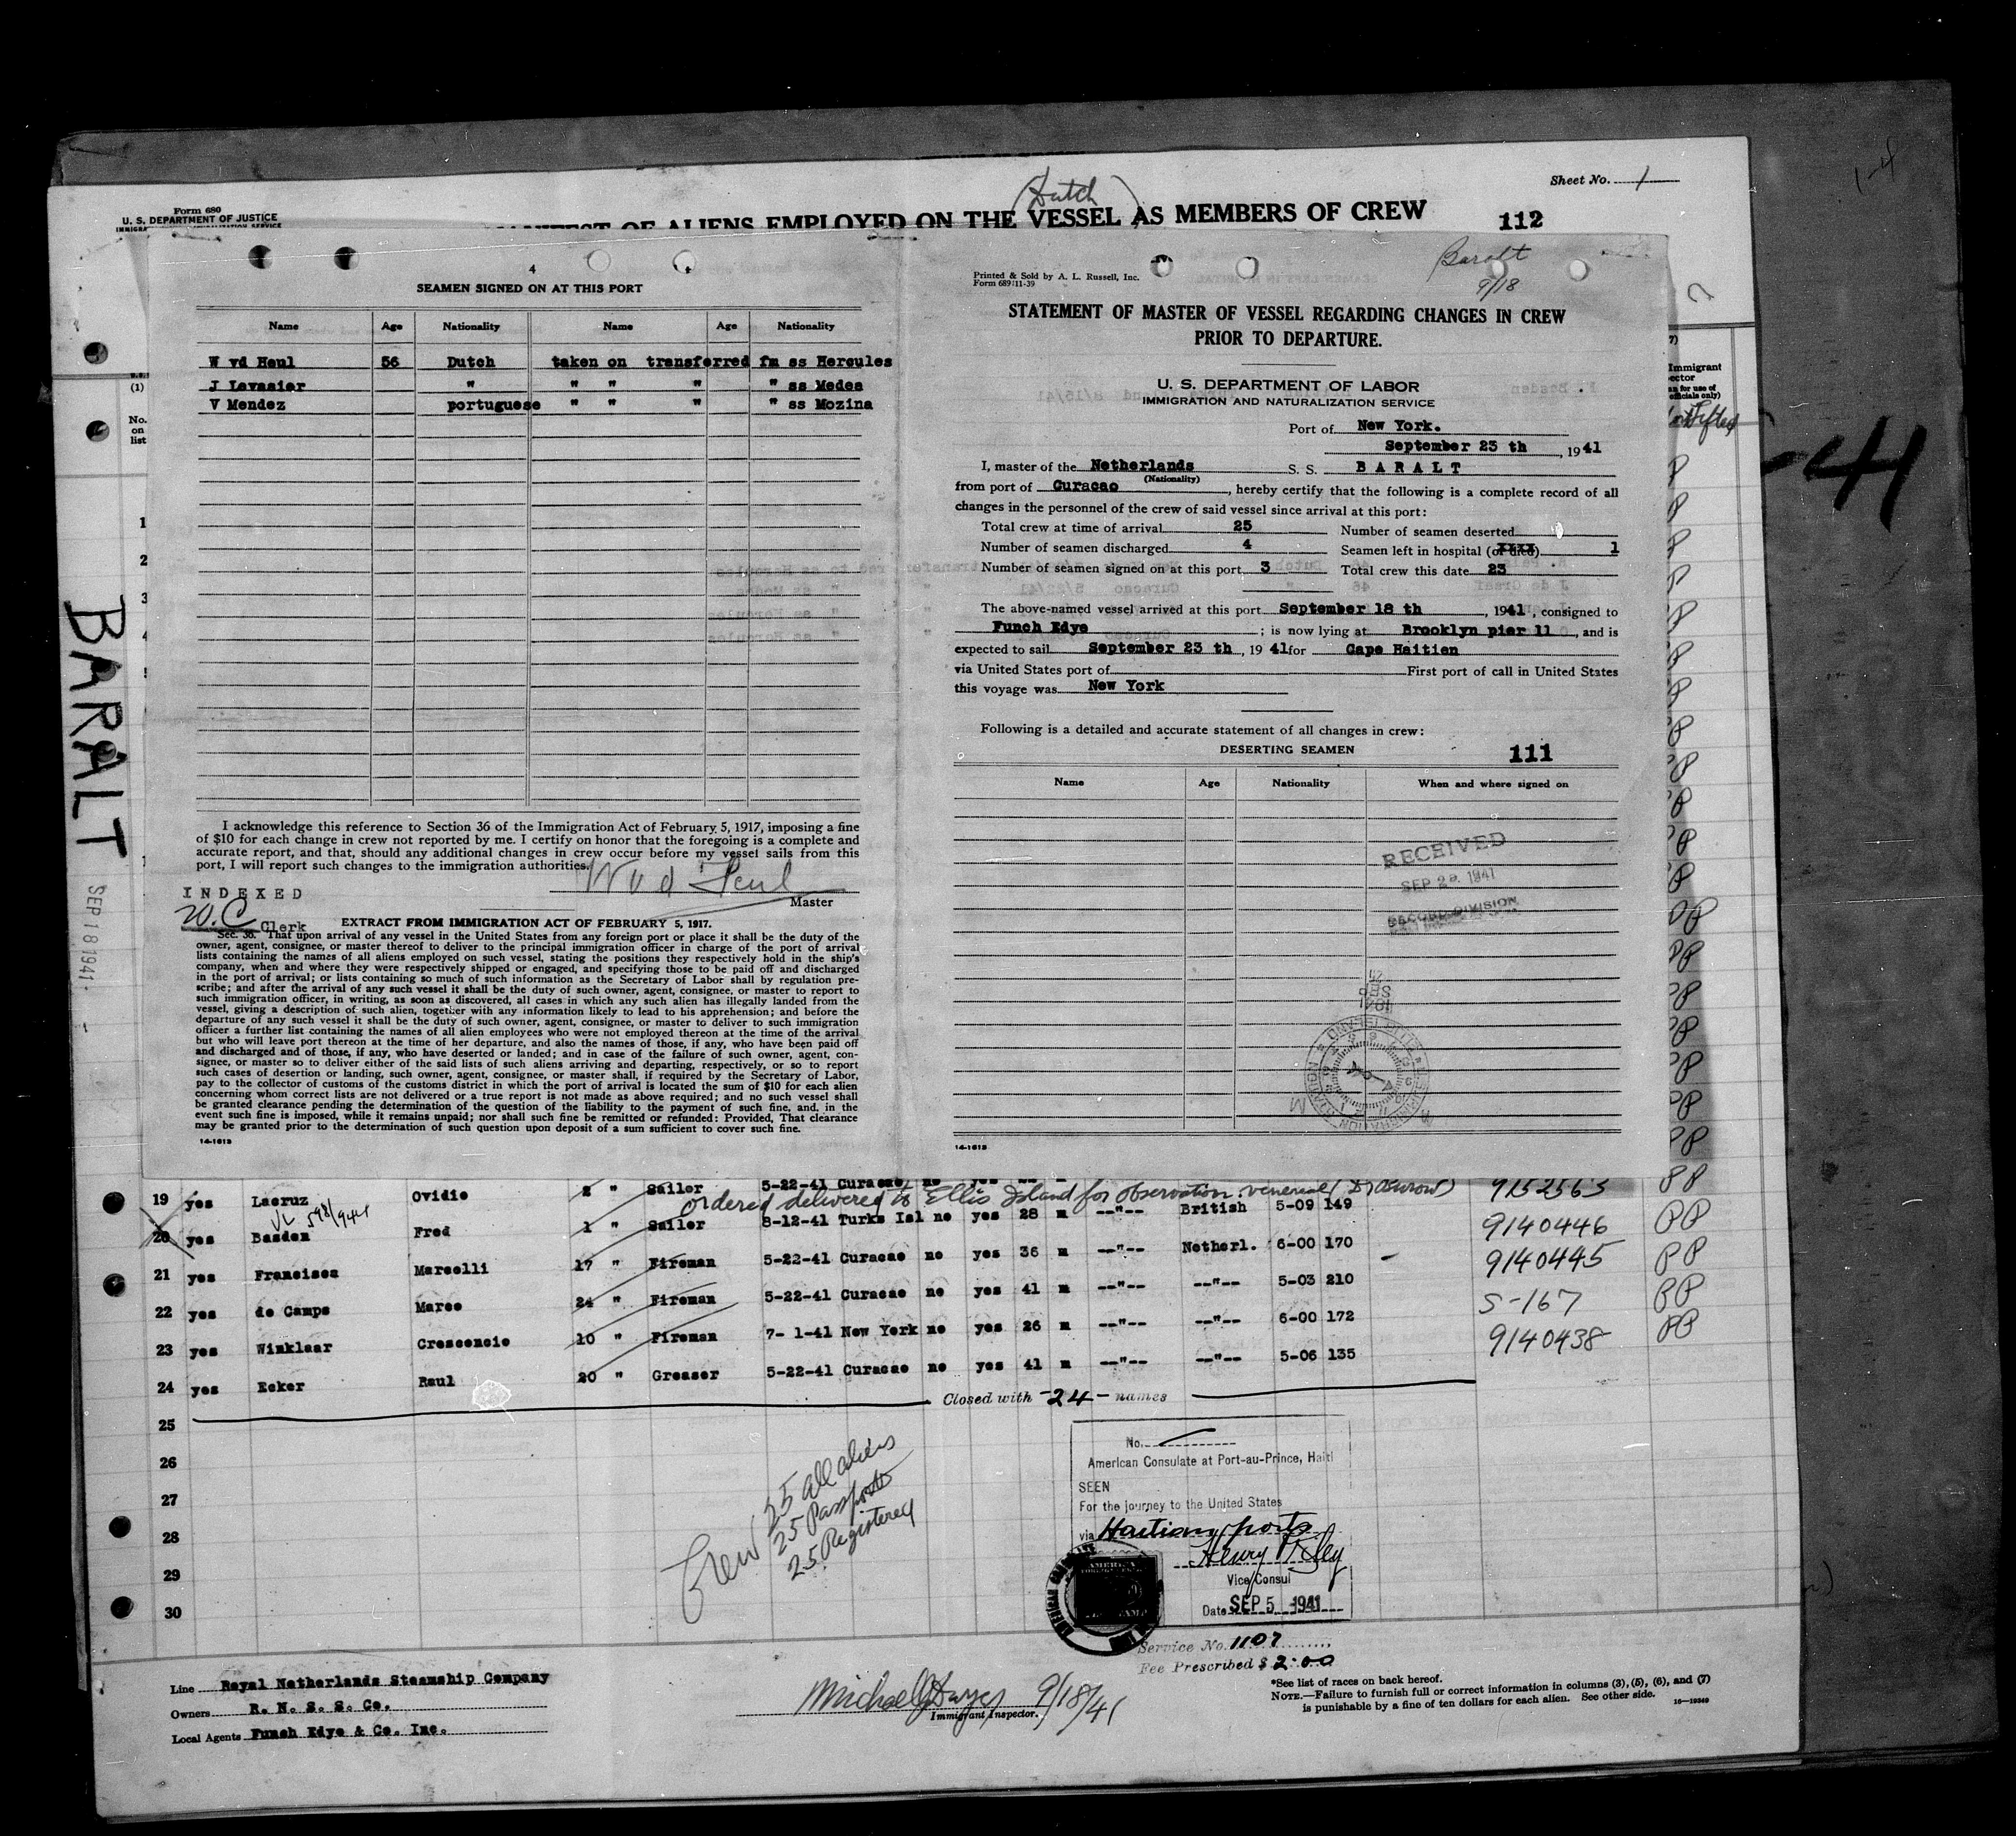 (Dutch)
Sheet No. 1
Form 680
U. S. DEPARTMENT OF JUSTICE
MANIFEST OF ALIENS EMPLOYED ON THE VESSEL AS MEMBERS OF CREW
112
4
SEAMEN SIGNED ON AT THIS PORT
Name Age Nationality Name Age Nationality
W vd Heul 56 Dutch taken on transferred fm ss Hercules
J Levasier " " " " " ss Medea
V Mendez portuguese " " " " ss Mozina
I acknowledge this reference to Section 36 of the Immigration Act of February 5, 1917, imposing a fine
of $10 for each change in crew not reported by me. I certify on honor that the foregoing is a complete and
accurate report, and that, should any additional changes in crew occur before my vessel sails from this
port, I will report such changes to the immigration authorities.
W v d Heul
Master
INDEXED
W.C Clerk
EXTRACT FROM IMMIGRATION ACT OF FEBRUARY 5, 1917.
Sec. 36. That upon arrival of any vessel in the United States from any foreign port or place it shall be the duty of the
owner, agent, consignee, or master thereof to deliver to the principal immigration officer in charge of the port of arrival
lists containing the names of all aliens employed on such vessel, stating the positions they respectively hold in the ship's
company, when and where they were respectively shipped or engaged, and specifying those to be paid off and discharged
in the port of arrival; or lists containing so much of such information as the Secretary of Labor shall by regulation pre-
scribe; and after the arrival of any such vessel it shall be the duty of such owner, agent, consignee, or master to report to
such immigration officer, in writing, as soon as discovered, all cases in which any such alien has illegally landed from the
vessel, giving a description of such alien, together with any information likely to lead to his apprehension; and before the
departure of any such vessel it shall be the duty of such owner, agent, consignee, or master to deliver to such immigration
officer a further list containing the names of all alien employees who were not employed thereon at the time of the arrival
but who will leave port thereon at the time of her departure, and also the names of those, if any, who have been paid off
and discharged and of those, if any, who have deserted or landed; and in case of the failure of such owner, agent, con-
signee, or master so to deliver either of the said lists of such aliens arriving and departing, respectively, or so to report
such cases of desertion or landing, such owner, agent, consignee, or master shall, if required by the Secretary of Labor,
pay to the collector of customs of the customs district in which the port of arrival is located the sum of $10 for each alien
concerning whom correct lists are not delivered or a true report is not made as above required; and no such vessel shall
be granted clearance pending the determination of the question of the liability to the payment of such fine, and, in the
event such fine is imposed, while it remains unpaid; nor shall such fine be remitted or refunded: Provided, That clearance
may be granted prior to the determination of such question upon deposit of a sum sufficient to cover such fine.
14-1613
Printed & Sold by A. L. Russell, Inc.
Form 689:11-39
Baralt
9/18
STATEMENT OF MASTER OF VESSEL REGARDING CHANGES IN CREW
PRIOR TO DEPARTURE.
U. S. DEPARTMENT OF LABOR
IMMIGRATION AND NATURALIZATION SERVICE
Port of New York.
September 23 th, 1941
I, master of the Netherlands S. S. BARALT
(Nationality)
from port of Curacao, hereby certify that the following is a complete record of all
changes in the personnel of the crew of said vessel since arrival at this port:
Total crew at time of arrival 25 Number of seamen deserted
Number of seamen discharged 4 Seamen left in hospital (or died) 1
Number of seamen signed on at this port 3 Total crew this date 23
The above-named vessel arrived at this port September 18 th, 1941, consigned to
Funch Edye; is now lying at Brooklyn pier 11, and is
expected to sail September 23 th, 1941 for Cape Haitien
via United States port of First port of call in United States
this voyage was New York
Following is a detailed and accurate statement of all changes in crew:
DESERTING SEAMEN 111
Name Age Nationality When and where signed on
RECEIVED
SEP 1941
RECORD DIVISION
14-1613
Immigrant
(1)
No.
on
list
BARALT
SEP 18 1941
-41
19 yes Lacruz Ovidio 2 " Sailor 5-22-41 Curacao no yes 9152563 PP
ordered delivered to Ellis Island for observation venereal
20 yes Basden Fred 1 " Sailor 8-12-41 Turks Isl no yes 28 m --"-- British 5-09 149 9140446 PP
21 yes Francisca Marcelli 17 " Fireman 5-22-41 Curacao no yes 36 m --"-- Netherl. 6-00 170 9140445 PP
22 yes de Camps Marco 24 " Fireman 5-22-41 Curacao no yes 41 m --"-- --"-- 5-03 210 S-167 PP
23 yes Winklaar Crescencio 10 " Fireman 7- 1-41 New York no yes 26 m --"-- --"-- 6-00 172 9140438 PP
24 yes Ecker Raul 20 " Greaser 5-22-41 Curacao no yes 41 m --"-- --"-- 5-06 135
Closed with -24- names
25
26
27
28
29
30
Crew 25 all aliens
25 Passports
25 Registered
No.
American Consulate at Port-au-Prince, Haiti
SEEN
For the journey to the United States
via Haitian ports
Vice Consul
Date SEP 5 1941
Service No. 1107
Fee Prescribed $ 2.00
Line Royal Netherlands Steamship Company
Owners R. N. S. S. Co.
Local Agents Funch Edye & Co. Inc.
9/18/41
Immigrant Inspector.
*See list of races on back hereof.
NOTE.—Failure to furnish full or correct information in columns (3), (5), (6), and (7)
is punishable by a fine of ten dollars for each alien. See other side.
16—19349